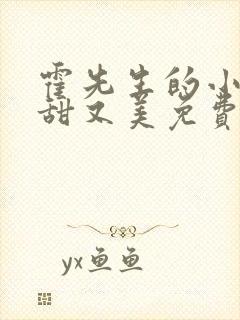 霍先生的小
甜又美免费
yx鱼鱼